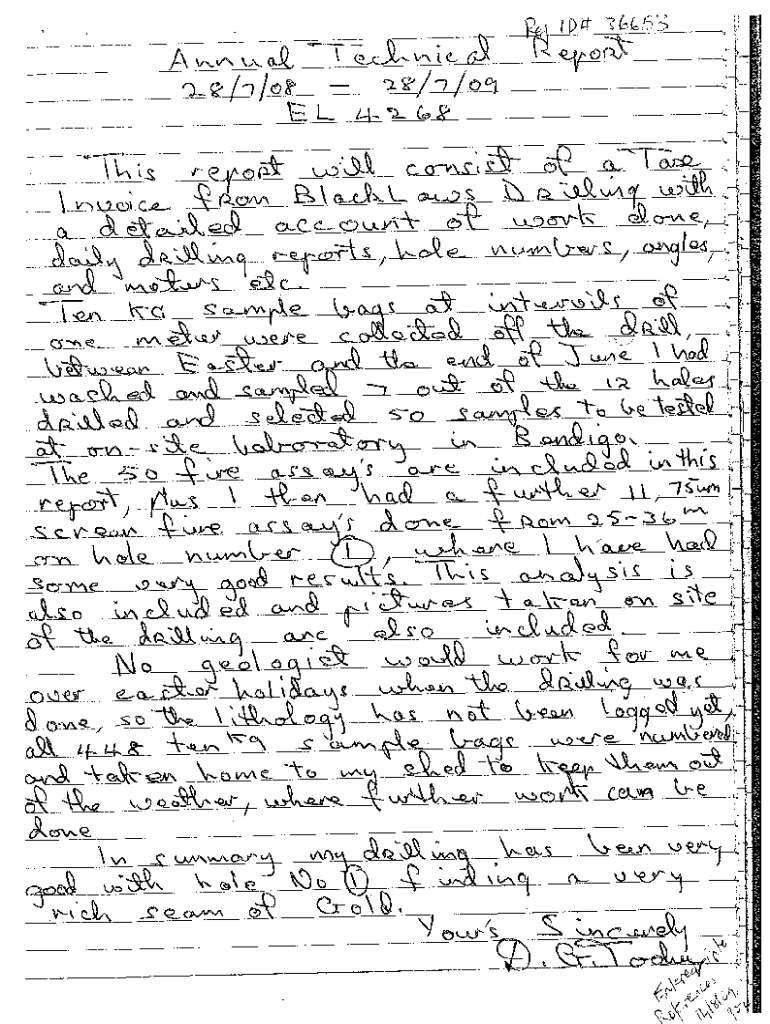 ID# 36653
Annual Technical Report
28/7/08 – 28/7/09
EL 4268
This report will consist of a Taxe
Invoice from BlackLaws Drilling with
a detailed account of work done,
daily drilling reports, hole numbers, angles,
and meters etc.
Ten KG sample bags at intervils of
one meter were collected off the drill,
between Easter and the end of June I had
washed and sampled 7 out of the 12 holes
drilled and selected 50 samples to be tested
at on-site laboratory in Bendigo.
The 50 fire assay's are included in this
report, plus I then had a further 11, 75um
screan fire assay's done from 25-36m
on hole number 1, where I have had
some very good results. This analysis is
also included and pictures taken on site
of the drilling are also included.
No geologist would work for me
over easter holidays when the drilling was
done, so the lithology has not been logged yet,
all 448 ten kg sample bags were numbered
and taken home to my shed to keep them out
of the weather, where further work can be
done
In summary my drilling has been very
good with hole No 1 finding a very
rich seam of Gold.
Your's Sincerely
D. G.
References